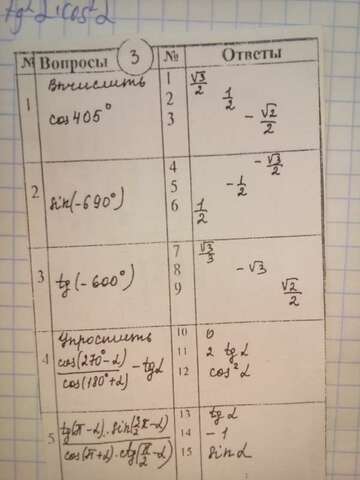 tg²α · cos²α
№ Вопросы 3 № Ответы
1 Вычислить cos 405° 1 √3/2
2 1/2
3 -√2/2
2 sin(-690°) 4 -√3/2
5 -1/2
6 1/2
3 tg(-600°) 7 √3/3
8 -√3
9 √2/2
4 Упростить cos(270°-α)/cos(180°+α) - tgα 10 0
11 2 tgα
12 cos²α
5 tg(π-α)·sin(3/2π-α)/cos(π+α)·ctg(π/2-α) 13 tgα
14 -1
15 sinα